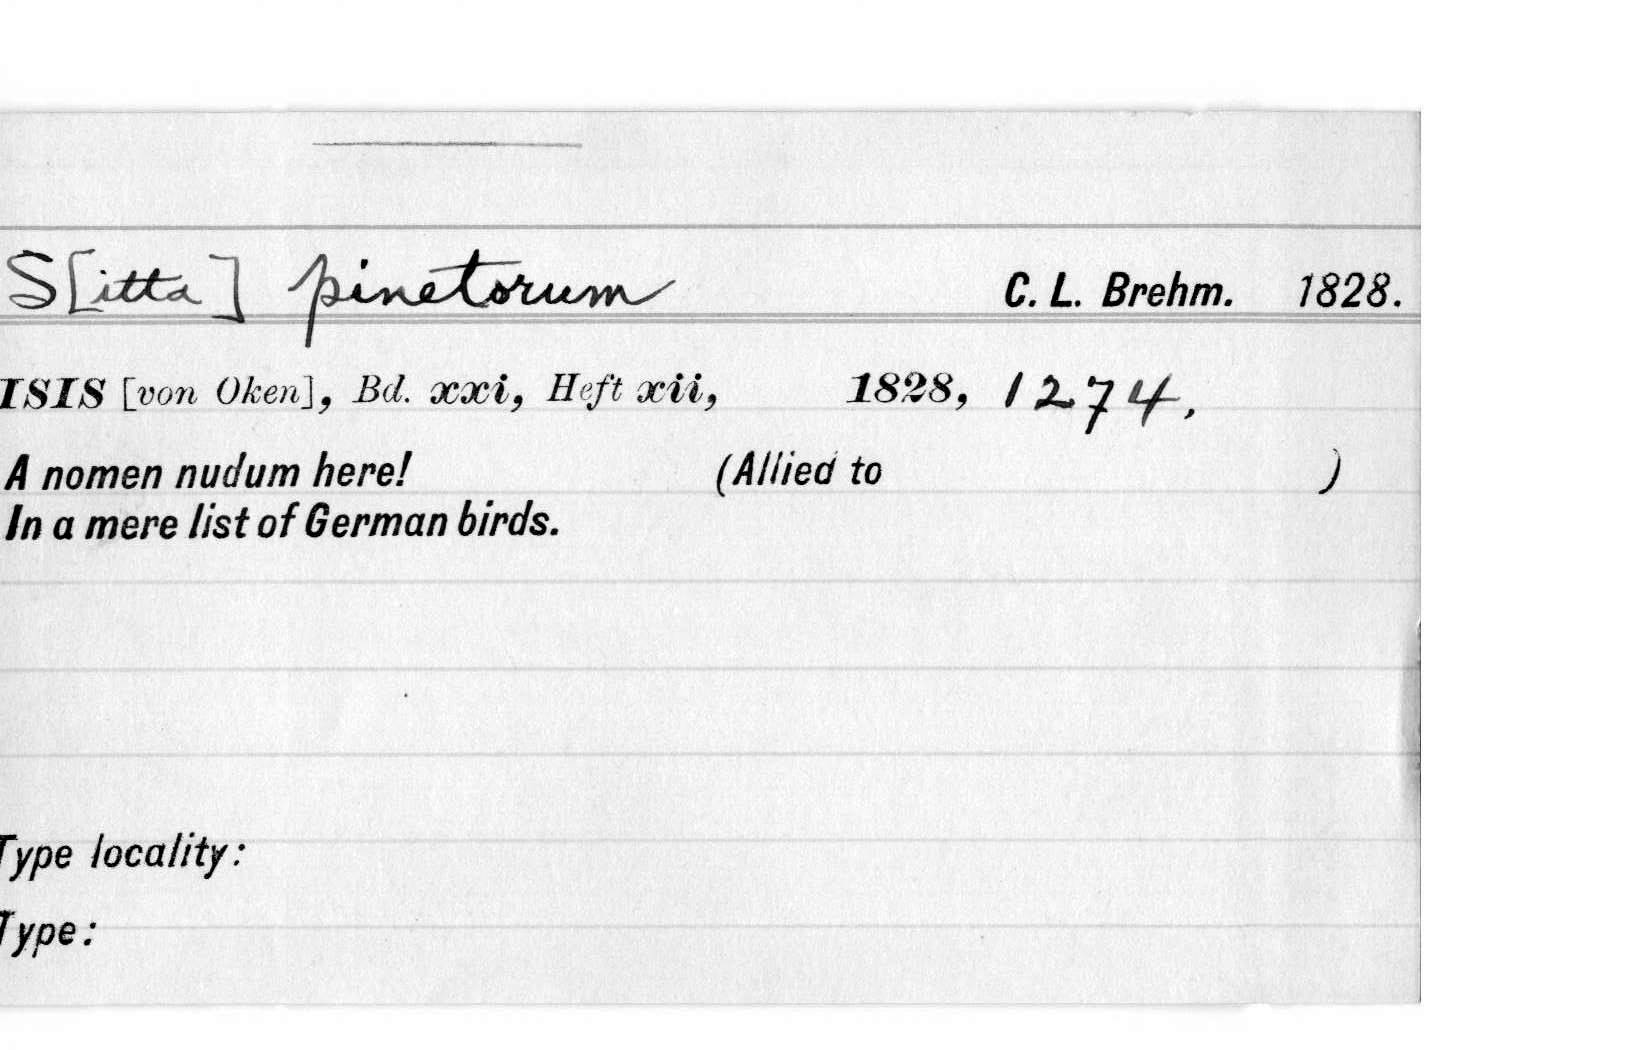 S[itta] pinetorum C. L. Brehm. 1828.
ISIS [von Oken], Bd. xxi, Heft xii, 1828, 1274.
A nomen nudum here! (Allied to )
In a mere list of German birds.
Type locality:
Type: